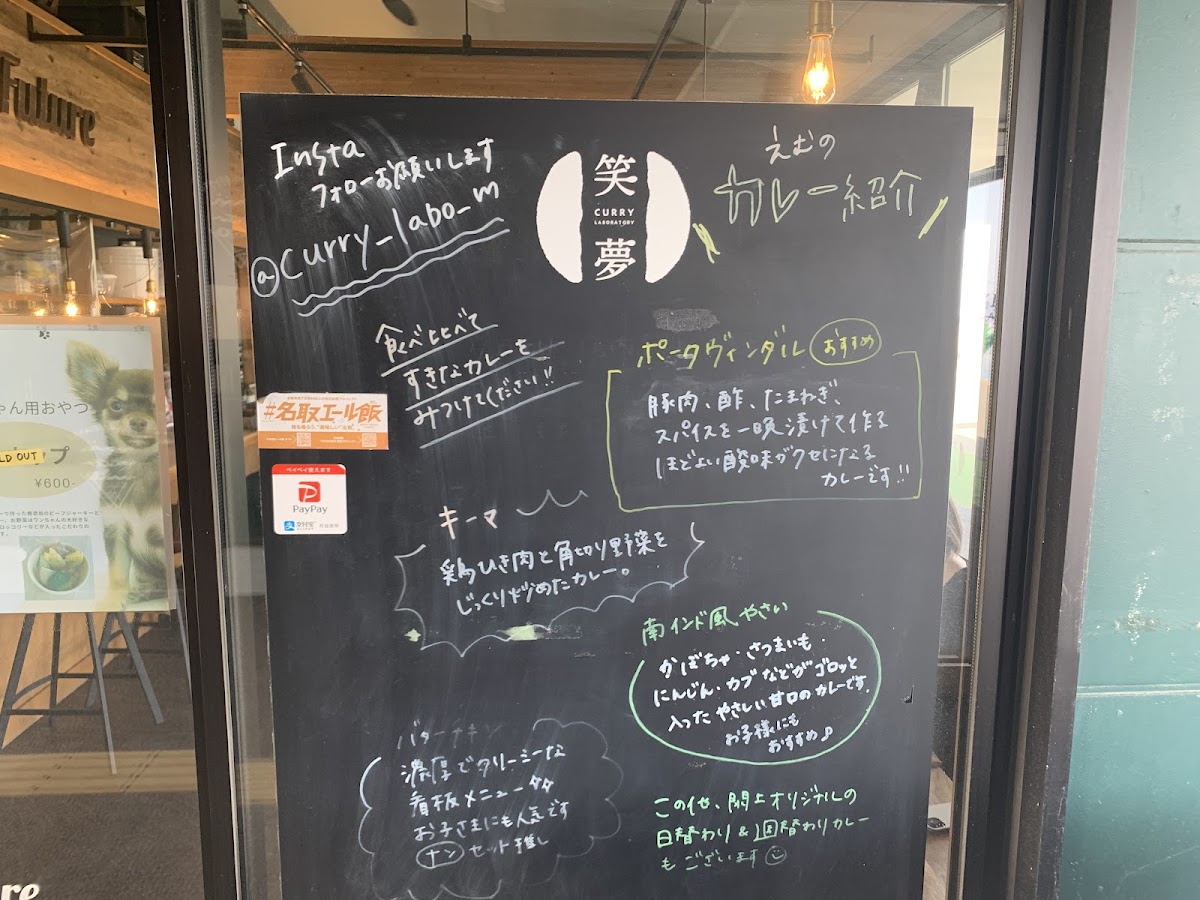 Future
Insta
フォローお願いします
@curry_labo_m
笑
CURRY
LABORATORY
夢
えむの
カレー紹介
食べ比べて
すきなカレーを
みつけてください!!
#名取エール飯
ペイペイ使えます
PayPay
支付宝
ポークヴィンダル おすすめ
豚肉、酢、たまねぎ、
スパイスを一晩漬けて作る
ほどよい酸味がクセになる
カレーです!!
キーマ
鶏ひき肉と角切り野菜を
じっくり炒めたカレー。
南インド風やさい
かぼちゃ・さつまいも・
にんじん・カブなどがゴロッと
入ったやさしい甘口のカレーです。
お子様にも
おすすめ♪
バターチキン
濃厚でクリーミーな
看板メニュー
お子さまにも人気です
ナンセット推し
この他、閖上オリジナルの
日替わり&週替わりカレー
もございます
ちゃん用おやつ
LD OUT
プ
¥600-
re